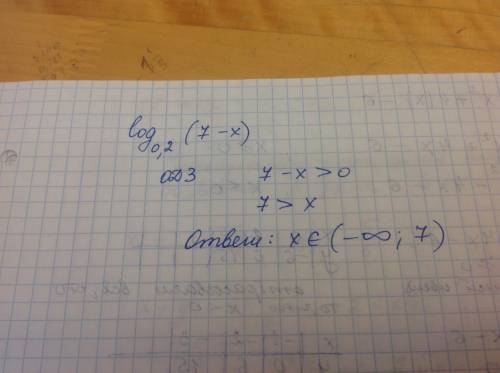 log₀,₂ (7 - x)
ОДЗ 7 - x > 0
7 > x
Ответ: x ∈ (-∞; 7)